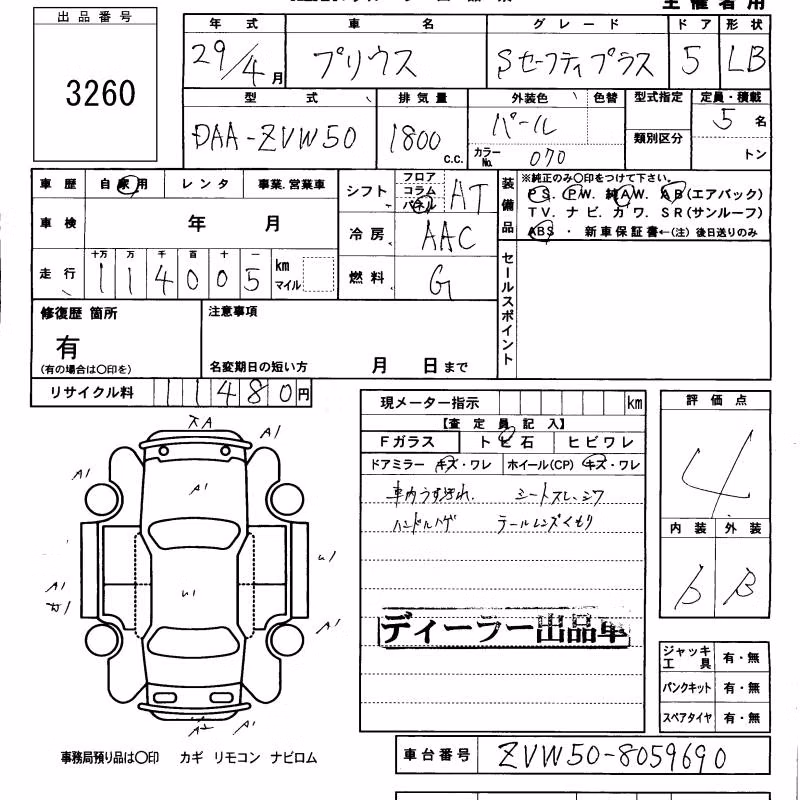 主催者用
出品番号
3260
年式 車名 グレード ドア 形状
29/4月 プリウス Sセーフティプラス 5 LB
型式 排気量 外装色 色替 型式指定 定員・積載
DAA-ZVW50 1800 c.c. パール 類別区分 5名
カラーNo. 070 トン
車歴 自家用 レンタ 事業.営業車
シフト フロア コラム パネル AT
装備品 ※純正のみ○印をつけて下さい.
PS. PW. 純AW. AB(エアバック)
TV. ナビ. カワ. SR(サンルーフ)
ABS ・ 新車保証書←(注) 後日送りのみ
車検 年 月
冷房 AAC
走行 十万 万 千 百 十 一
114005 km マイル
燃料 G
セールスポイント
修復歴 箇所
有
(有の場合は○印を)
注意事項
名変期日の短い方 月 日まで
リサイクル料 11480円
現メーター指示 km
【査定員記入】
Fガラス トビ石 ヒビワレ
ドアミラー キズ・ワレ ホイール(CP) キズ・ワレ
車内うすよごれ. シートスレ、シワ
ハンドルハゲ テールレンズくもり
ディーラー出品車
評価点
4
内装 外装
b B
A1
A1
A1
A1
A1
U1
U1
A1
A2 A1
ジャッキ工具 有・無
パンクキット 有・無
スペアタイヤ 有・無
事務局預り品は○印 カギ リモコン ナビロム
車台番号 ZVW50-8059690